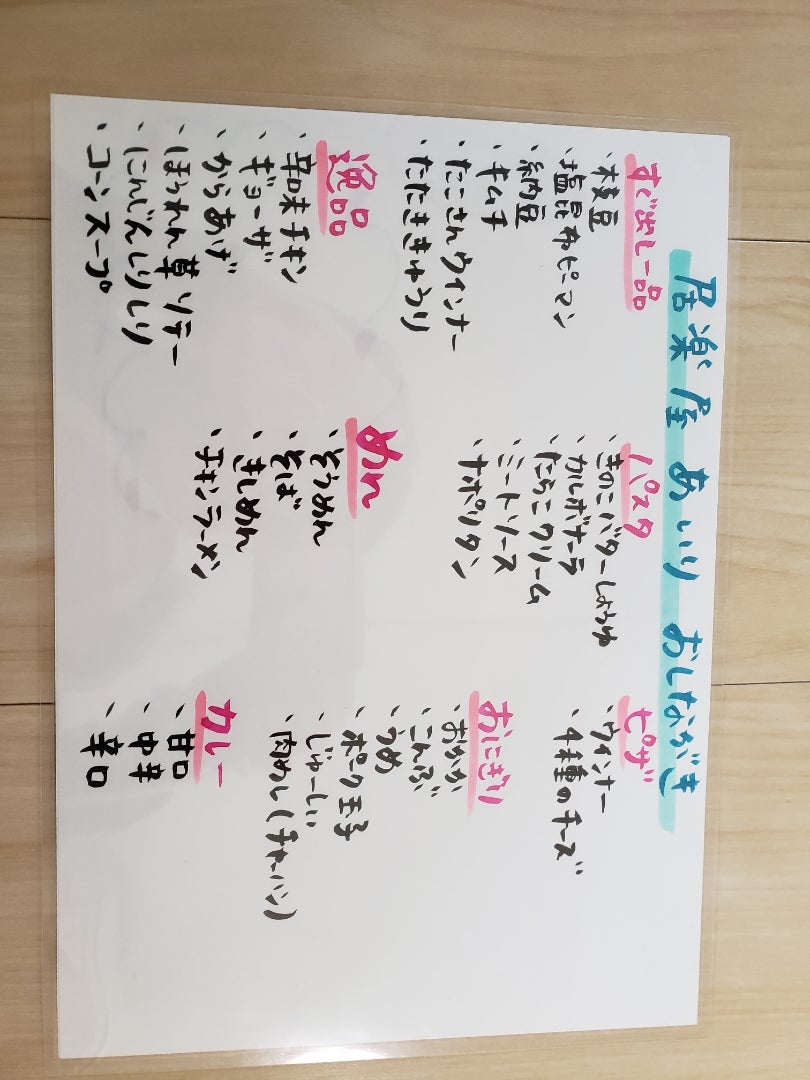 居楽屋 あいり おしながき
すぐ出し一品
・枝豆
・塩昆布ピーマン
・納豆
・キムチ
・たこさんウインナー
・たたききゅうり
逸品
・辛味チキン
・ギョーザ
・からあげ
・ほうれん草ソテー
・にんじんしりしり
・コーンスープ
パスタ
・きのこバターしょうゆ
・カルボナーラ
・たらこクリーム
・ミートソース
・ナポリタン
めん
・そうめん
・そば
・きしめん
・チキンラーメン
ピザ
・ウィンナー
・4種のチーズ
おにぎり
・おかか
・こんぶ
・うめ
・ポーク玉子
・じゅーしぃ
・肉めし(チャーハン)
カレー
・甘口
・中辛
・辛口